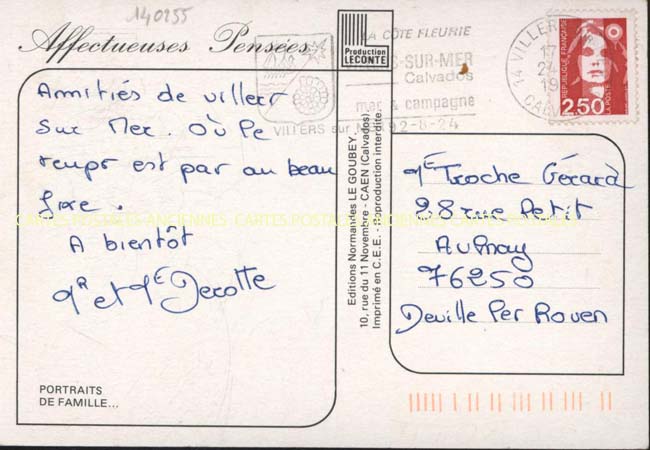 140255
Affectueuses Pensées
Production
LECONTE
LA CÔTE FLEURIE
SUR-MER
Calvados
mer & campagne
VILLERS sur 92-8-24
14 VILLERS
17
24
19
CALV
REPUBLIQUE FRANÇAISE
LA POSTE
2,50
Amitiés de villers
Sur Mer. Où Le
temps est pas au beau
fixe.
A bientôt
Mr et Me Decotte
PORTRAITS
DE FAMILLE...
Editions Normandes LE GOUBEY
10, rue du 11 Novembre - CAEN (Calvados)
Imprimé en C.E.E. - Reproduction interdite
CARTES POSTALES ANCIENNES CARTES POSTALES ANCIENNES CARTES POSTALES
Me Troche Gérard
28 rue Petit
Aulnay
76250
Deville Les Rouen